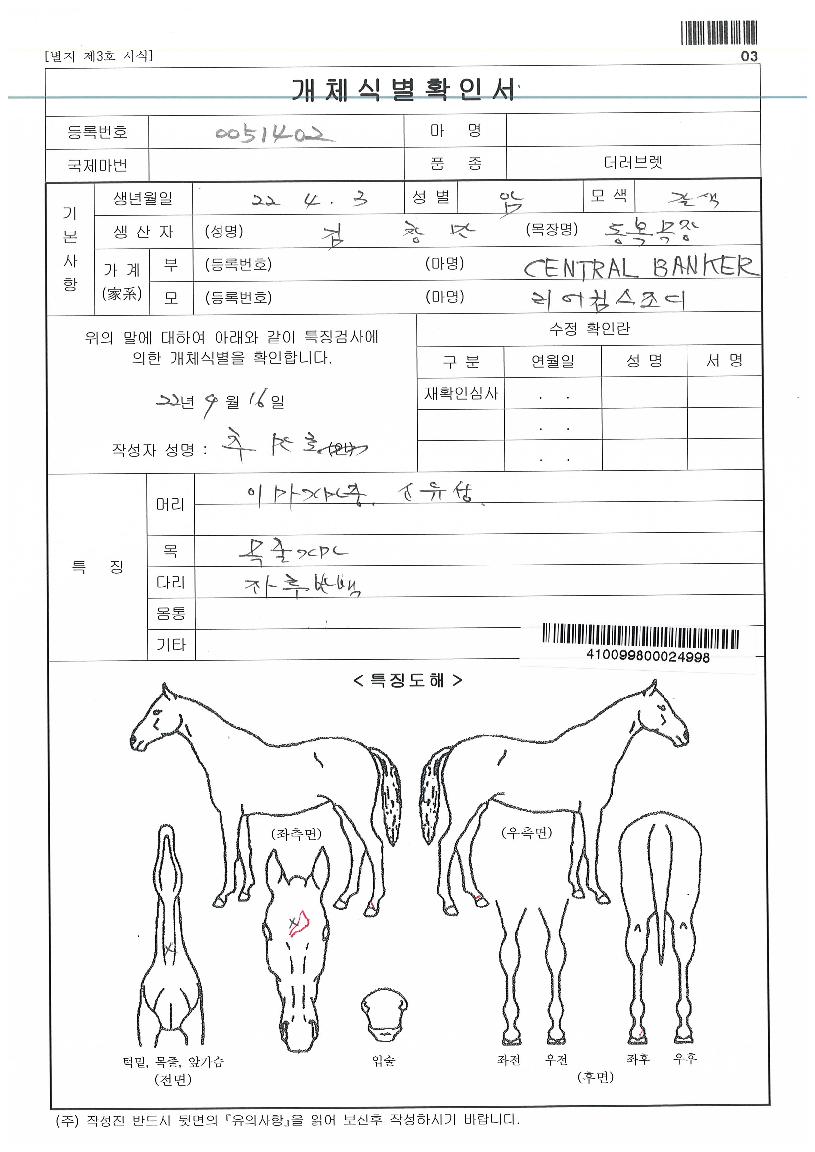 [별지 제3호 서식]
03
개체식별확인서
등록번호 0051402 마 명
국제마번 품 종 더러브렛
기본사항
생년월일 22 4 . 3 성 별 암 모 색 갈색
생 산 자 (성명) 김 창 만 (목장명) 동북목장
가 계 (家系) 부 (등록번호) (마명) CENTRAL BANKER
모 (등록번호) (마명)
위의 말에 대하여 아래와 같이 특징검사에
의한 개체식별을 확인합니다.
22년 9월 16일
작성자 성명 :
수정 확인란
구 분 연월일 성 명 서 명
재확인심사 . .
. .
. .
특 징
머리
목
다리 좌후반백
몸통
기타
410099800024998
< 특징도해 >
(좌측면) (우측면)
턱밑, 목줄, 앞가슴 입술 좌전 우전 좌후 우후
(전면) (후면)
(주) 작성전 반드시 뒷면의 『유의사항』을 읽어 보신후 작성하시기 바랍니다.